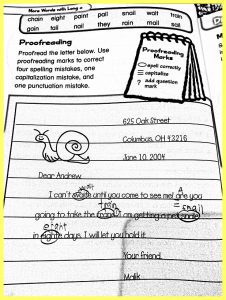 More Words with Long a
chain eight paint pail snail wait train
gain tail nail they rain mail sail
Proofreading
Proofread the letter below. Use
proofreading marks to correct
four spelling mistakes, one
capitalization mistake, and
one punctuation mistake.
Proofreading
Marks
spell correctly
capitalize
? add question
mark
625 Oak Street
Columbus, OH 43216
June 10, 2004
Dear Andrew,
wait
I can't until you come to see me! are you
train snail
going to take the I am getting a pet
eight
in days. I will let you hold it.
Your friend,
Malik